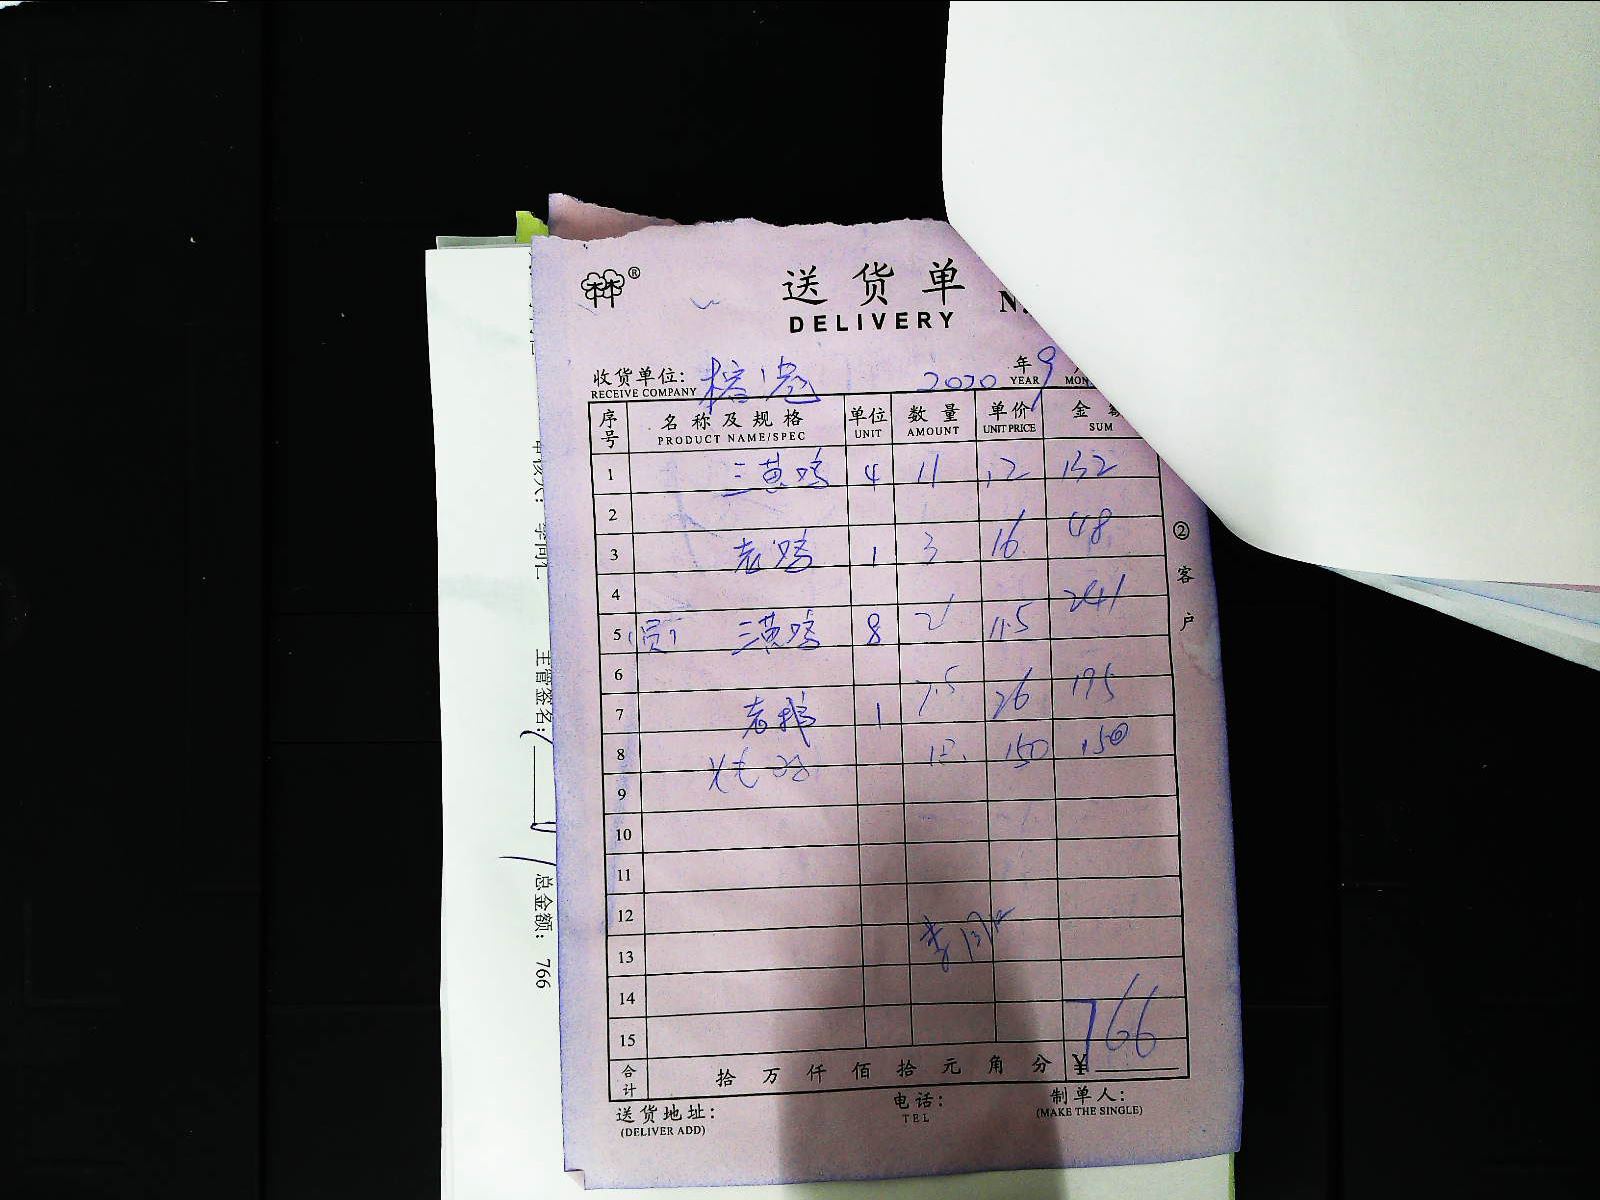 林®
送货单
DELIVERY
收货单位: 榕港 2020 年 9
RECEIVE COMPANY YEAR
序号 名称及规格 单位 数量 单价 金
PRODUCT NAME/SPEC UNIT AMOUNT UNIT PRICE SUM
1 三黄鸡 4 11 12 132
2
3 老鸡 1 3 16 48
4
5 (员) 三黄鸡 8 21 11.5 241
6
7 老鸭 1 7.5 26 195
8 150 150
9
10
11
12
13
14
15
766
合计 拾 万 仟 佰 拾 元 角 分 ¥
送货地址: 电话: 制单人:
(DELIVER ADD) TEL (MAKE THE SINGLE)
②客户
主管签名:
总金额: 766